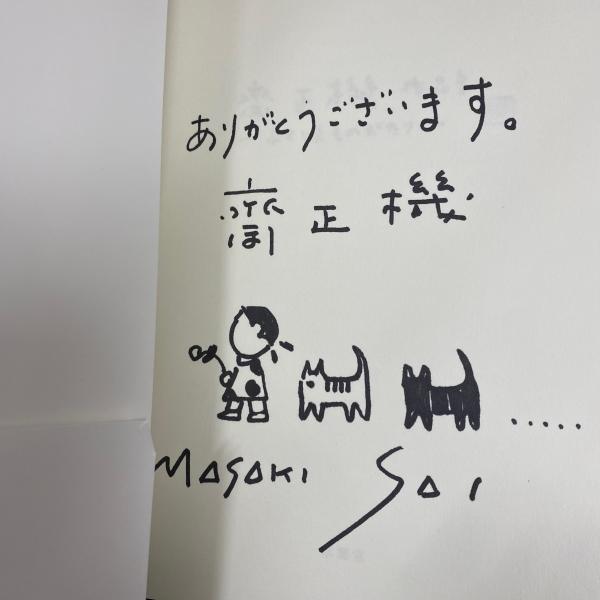 ありがとうございます。
齋正機
MASAKI SAI